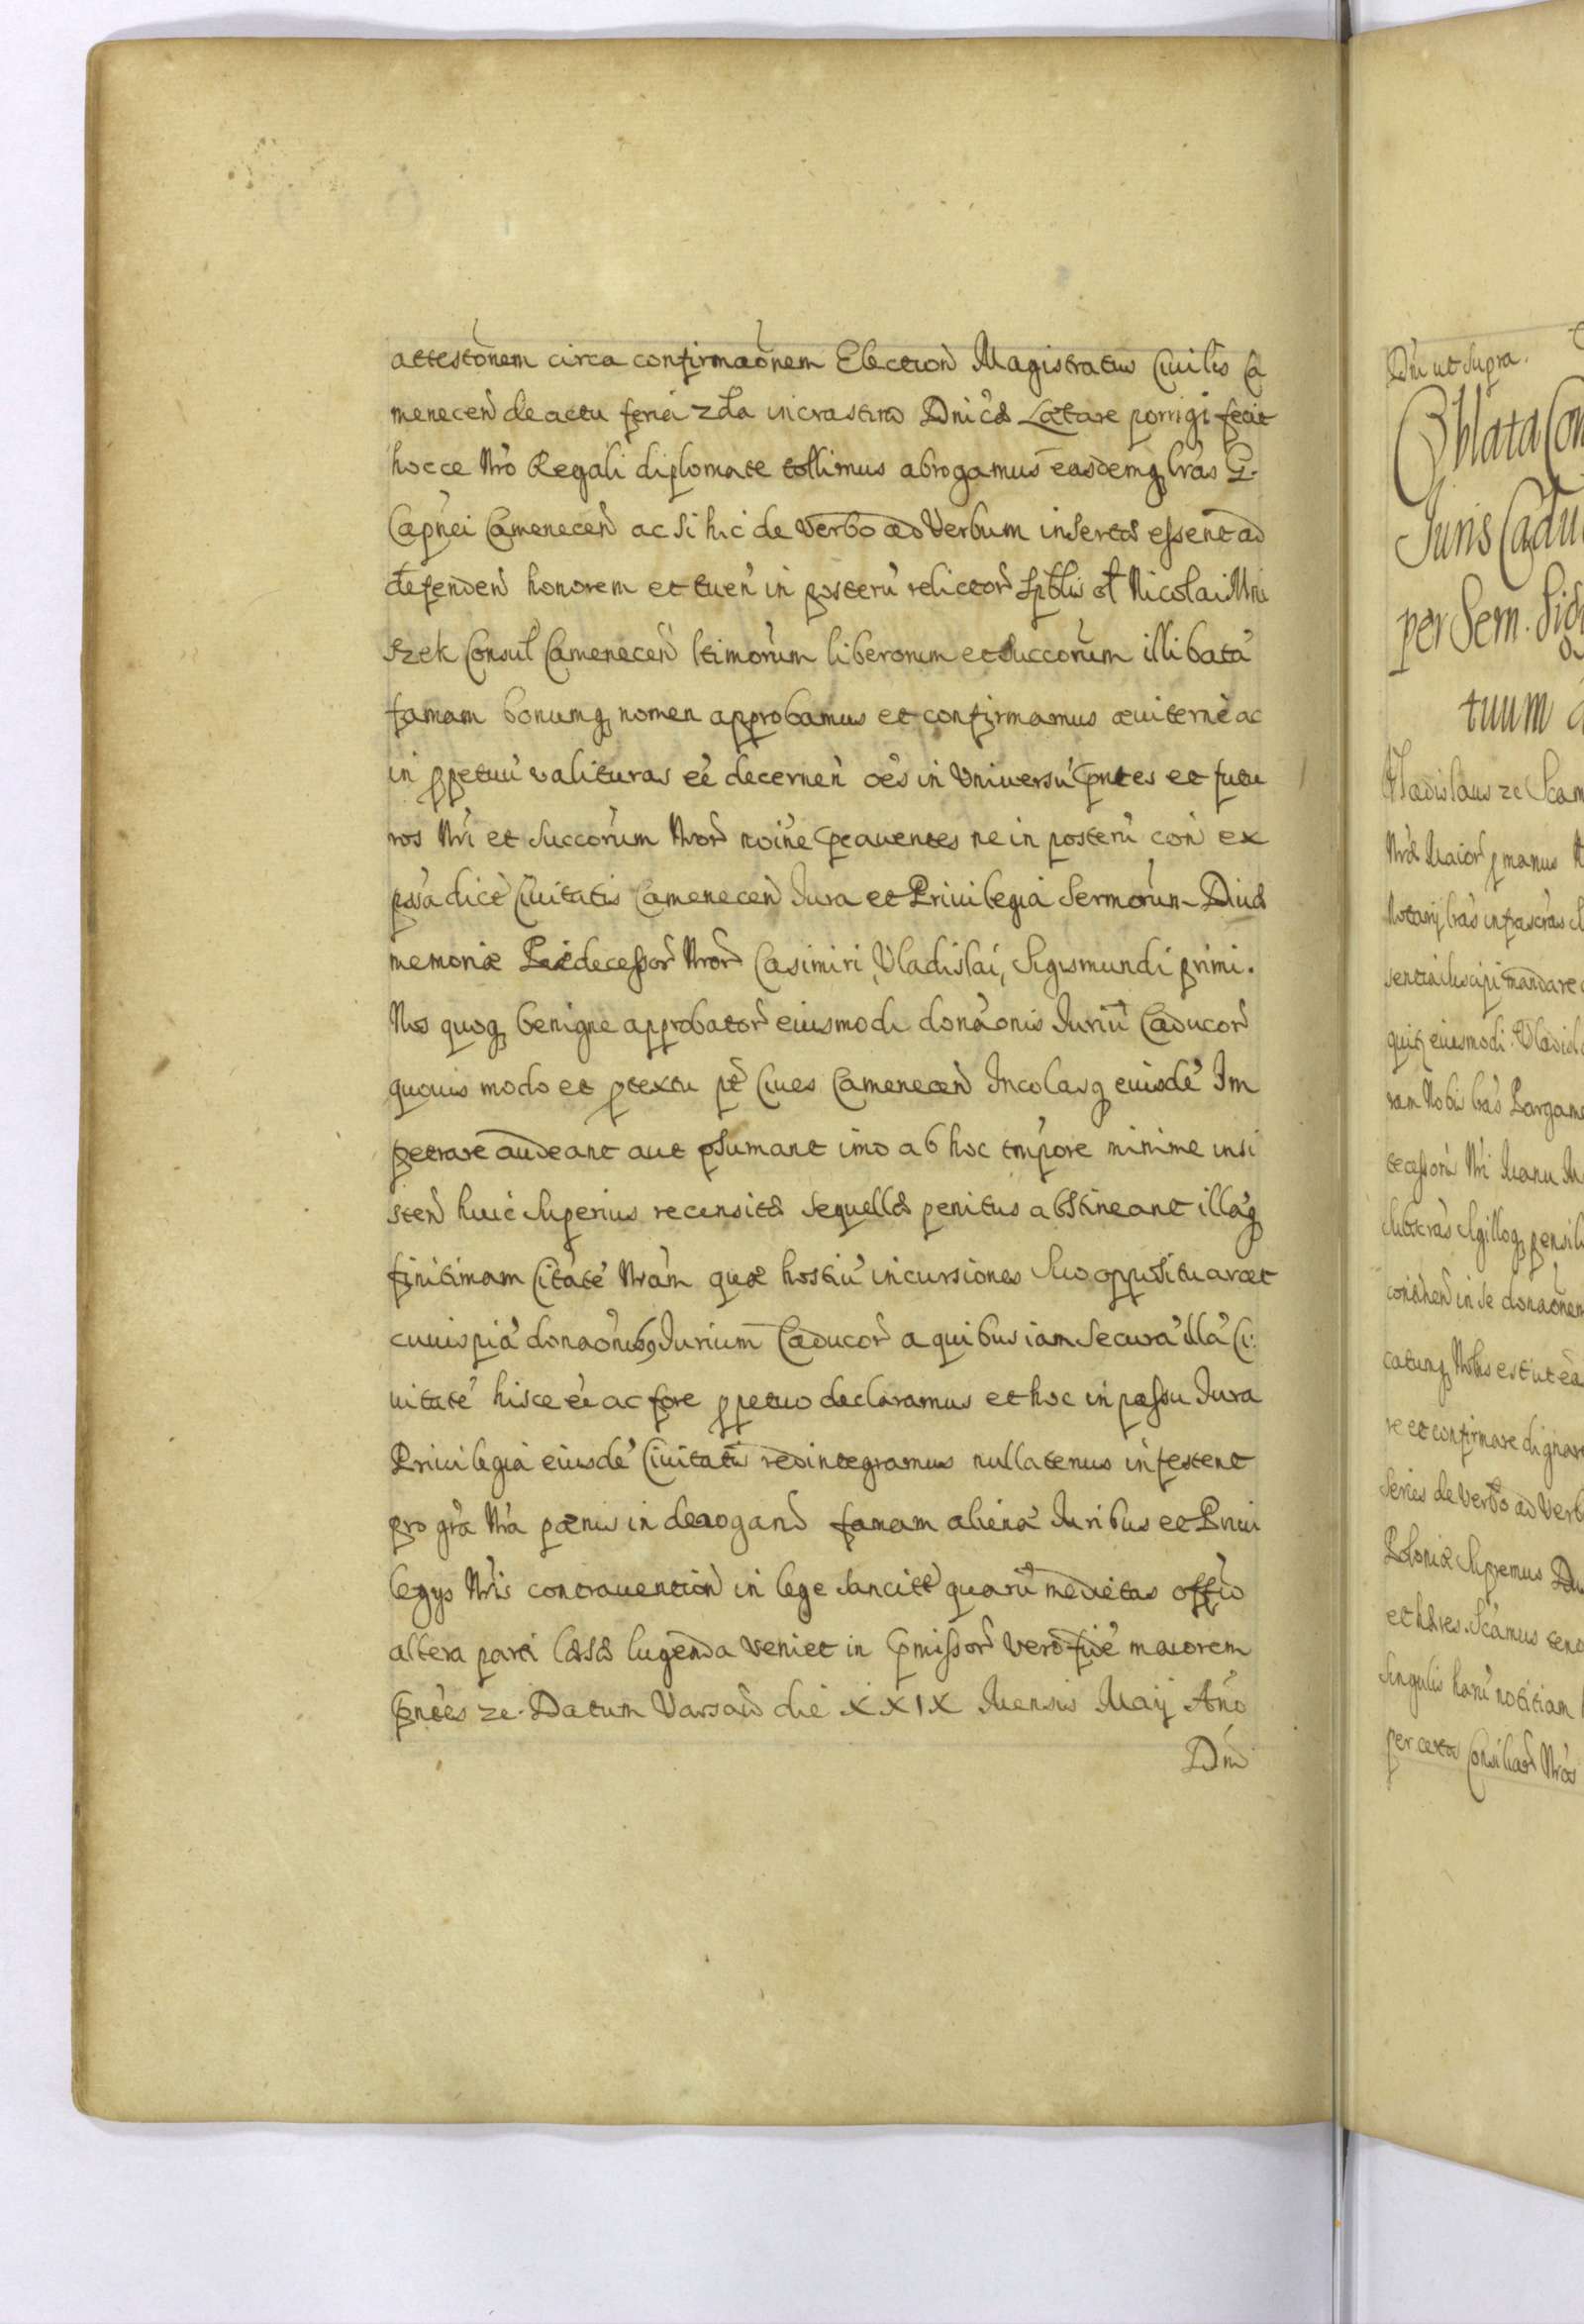 attestõnem circa confirmaõnem Election Magistratus Ciuilis Ca
menecen de actu feria 2da in crastino Dnicæ Lætare porrigi fecit
hocce Nro Regali diplomate tollimus abrogamus easdemq lras G.
Capnei Camenecen ac si hic de Verbo ad Verbum insertæ essent ad
defenden honorem et tuen in posteru relictor Nicolai Mni
szek Consul Camenecen ltimorum liberorum et Succorum illibatá
famam bonumq nomen approbamus et confirmamus æuiterne ac
in ppetuu valituras eé decernen oés in Vniversu pntes et futu
ros Nri et Succorum Nror noine pcauentes ne in posteru con ex
pssa dictè Ciuitatis Camenecen Iura et Priuilegia Sermorum Diuæ
memoriæ Prædecessor Nror Casimiri, Vladislai, Sigismundi primi.
Nos quoq benigne approbator eiusmodi donaonis Iuriu Caducor
quouis modo et ptextu Ciues Camenecen Incolasq eiusdé Im
petrare audeant aut psumant imo ab hoc tmpore minime insi
sten huic Superius recensitæ Sequellæ penitus abstineant illaq
finitimam Citaté Nram quæ hostiu incursiones Suo oppositu arcet
cuiuspiá donaonibq Iurium Caducor a quibus iam Secura illá Ci:
uitaté hisce eé ac fore ppetuo declaramus et hoc in passu Iura
Priuilegia eiusdé Ciuitatis redintegramus nullatenus infestent
pro gra Nra pænis in derogand famam aliená Iuribus et Priui
legys Nris contrauention in lege Sancitæ quaru medietas offio
altera parti læsæ lugenda Veniet in pmissor Vero fidé maiorem
pntes zc. Datum Varsaw die XXIX Mensis Maij Ano
Dni
Dni ut Supra.
Oblata Con
Iuris Cadu
per Serm. Sig
tuum
Vladislaus zc Scam
Nræ Maior p manus N
Notarij lras infrascras
sentia Suscipi mandare
quiq eiusmodi Vladisl
ram Nobis lras Pargame
tecessoru Nri Manu
Subscras Sigilloq pensili
continen in Se donaonem
catumq Nobis est ut ea
re et confirmare dignare
Series de Verbo ad Verb
Poloniæ Supremus Du
et hæres. Scamus teno
Singulis haru notitiam
per certos Consiliar Nros